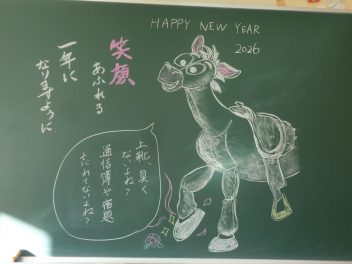 HAPPY NEW YEAR
2026
笑顔
あふれる
一年に
なりますように
上靴、臭く
ないよね?
通信簿や宿題
忘れてないよね?